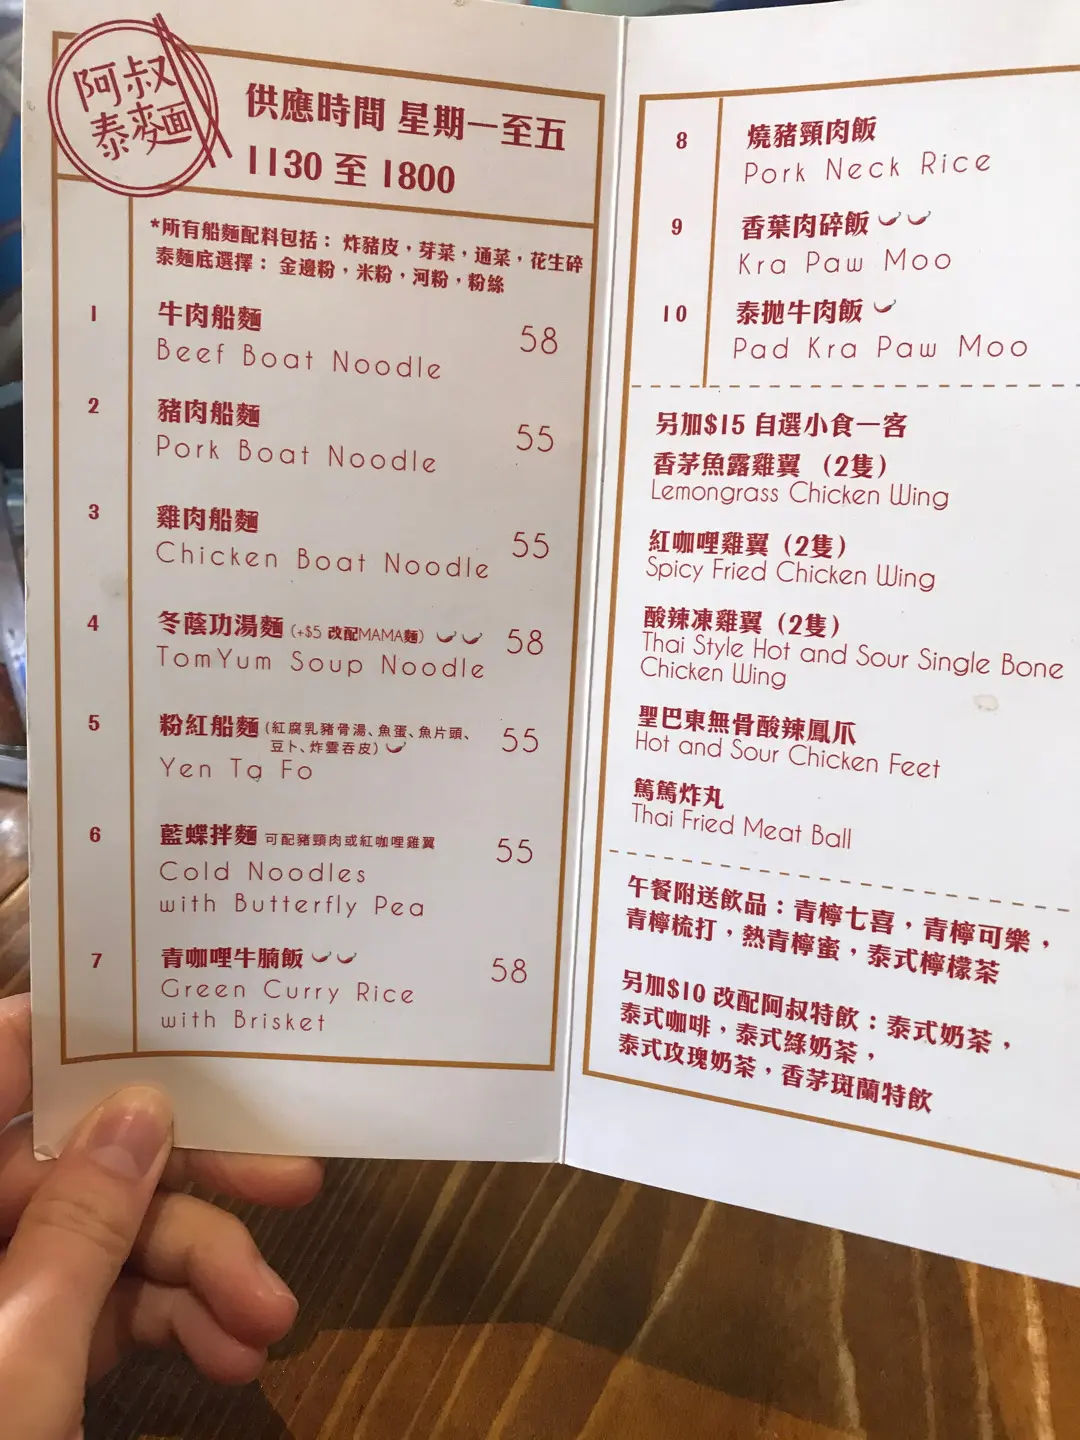 阿叔
泰麥面
供應時間 星期一至五
1130 至 1800
*所有船麵配料包括： 炸豬皮，芽菜，通菜，花生碎
泰麵底選擇： 金邊粉，米粉，河粉，粉絲
1
牛肉船麵
58
Beef Boat Noodle
2
豬肉船麵
55
Pork Boat Noodle
3
雞肉船麵
55
Chicken Boat Noodle
4
冬蔭功湯麵 (+$5 改配MAMA麵)
58
TomYum Soup Noodle
5
粉紅船麵 (紅腐乳豬骨湯、魚蛋、魚片頭、
豆卜、炸雲吞皮)
55
Yen Ta Fo
6
藍蝶拌麵 可配豬頸肉或紅咖哩雞翼
55
Cold Noodles
with Butterfly Pea
7
青咖哩牛腩飯
58
Green Curry Rice
with Brisket
8
燒豬頸肉飯
Pork Neck Rice
9
香葉肉碎飯
Kra Paw Moo
10
泰拋牛肉飯
Pad Kra Paw Moo
另加$15 自選小食一客
香茅魚露雞翼 （2隻）
Lemongrass Chicken Wing
紅咖哩雞翼（2隻）
Spicy Fried Chicken Wing
酸辣凍雞翼（2隻）
Thai Style Hot and Sour Single Bone
Chicken Wing
聖巴東無骨酸辣鳳爪
Hot and Sour Chicken Feet
篤篤炸丸
Thai Fried Meat Ball
午餐附送飲品：青檸七喜，青檸可樂，
青檸梳打，熱青檸蜜，泰式檸檬茶
另加$10 改配阿叔特飲：泰式奶茶，
泰式咖啡，泰式綠奶茶，
泰式玫瑰奶茶，香茅斑蘭特飲